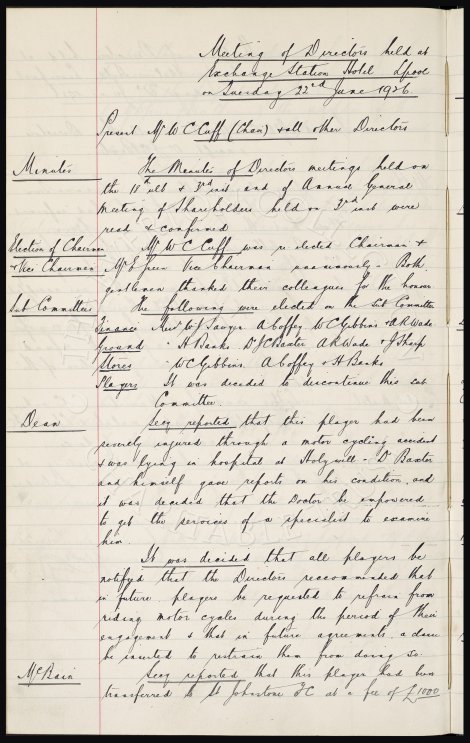 Meeting of Directors held at
Exchange Station Hotel Lpool
on Tuesday 22nd June 1926
Present Mr W C Cuff (Chair) & all other Directors
Minutes The Minutes of Directors meetings held on
the 18th ult & 3rd inst and of Annual General
Meeting of Shareholders held on 3rd inst were
read & confirmed
Election of Chairman Mr W C Cuff was re elected Chairman &
& Vice Chairman Mr E Green Vice Chairman unanimously - Both
gentlemen thanked their colleagues for the honour
Sub Committees The following were elected on the Sub Committees
Finance Messrs W J Sawyer A Coffey W C Gibbins & A R Wade
Ground " H Banks Dr J C Baxter A R Wade & J Sharp
Stores " W C Gibbins A Coffey & H Banks
Players It was decided to discontinue this sub
Committee
Dean Secy reported that this player had been
severely injured through a motor cycling accident
& was lying in hospital at Holywell - Dr Baxter
and himself gave reports on his condition and
it was decided that the Doctor be empowered
to get the services of a specialist to examine
him.
It was decided that all players be
notifyed that the Directors reccommended that
in future players be requested to refrain from
riding motor cycles during the period of their
engagement & that in future agreements, a clause
be inserted to restrain them from doing so.
McBain Secy reported that this player had been
transferred to St Johnstone FC at a fee of £1000